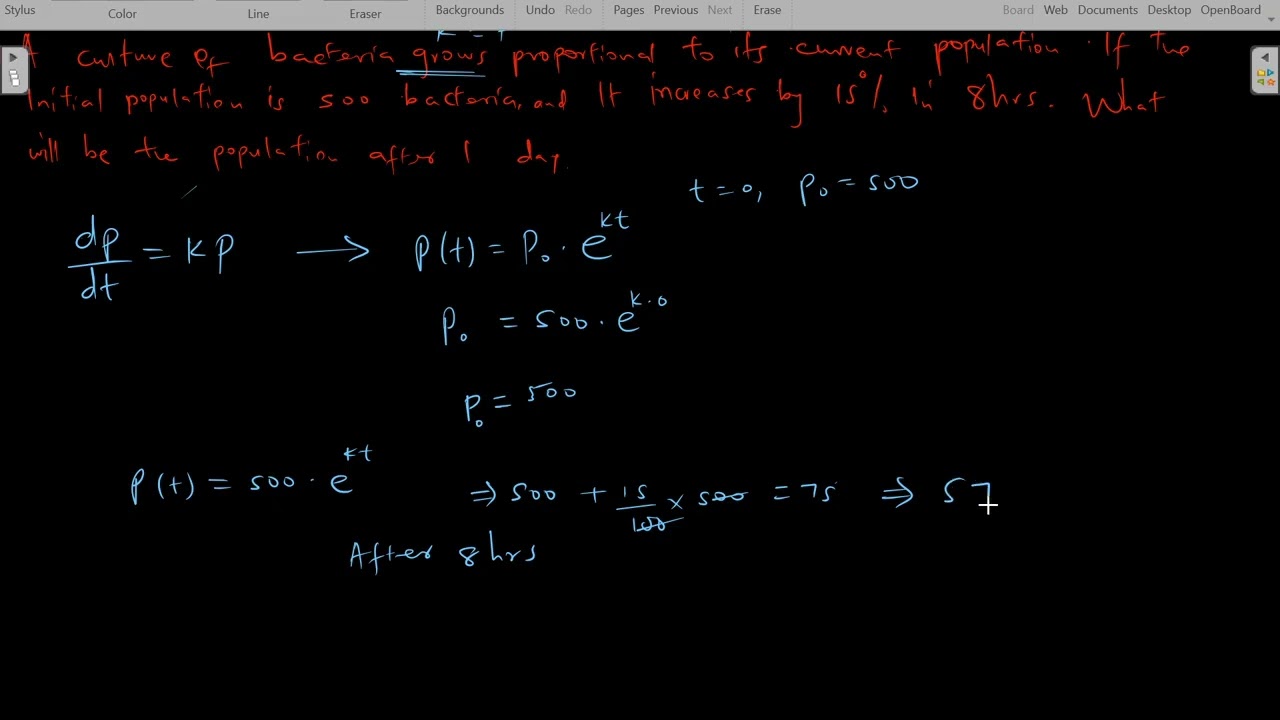 Stylus Color Line Eraser Backgrounds Undo Redo Pages Previous Next Erase Board Web Documents Desktop OpenBoard
A culture of bacteria grows proportional to its current population. If the
Initial population is 500 bacteria, and It increases by 15% in 8hrs. What
will be the population after 1 day.
t = 0, P₀ = 500
dp/dt = KP → P(t) = P₀ · e^{kt}
P₀ = 500 · e^{k·0}
P₀ = 500
P(t) = 500 · e^{kt} ⇒ 500 + 15/100 × 500 = 75 ⇒ 57
After 8 hrs